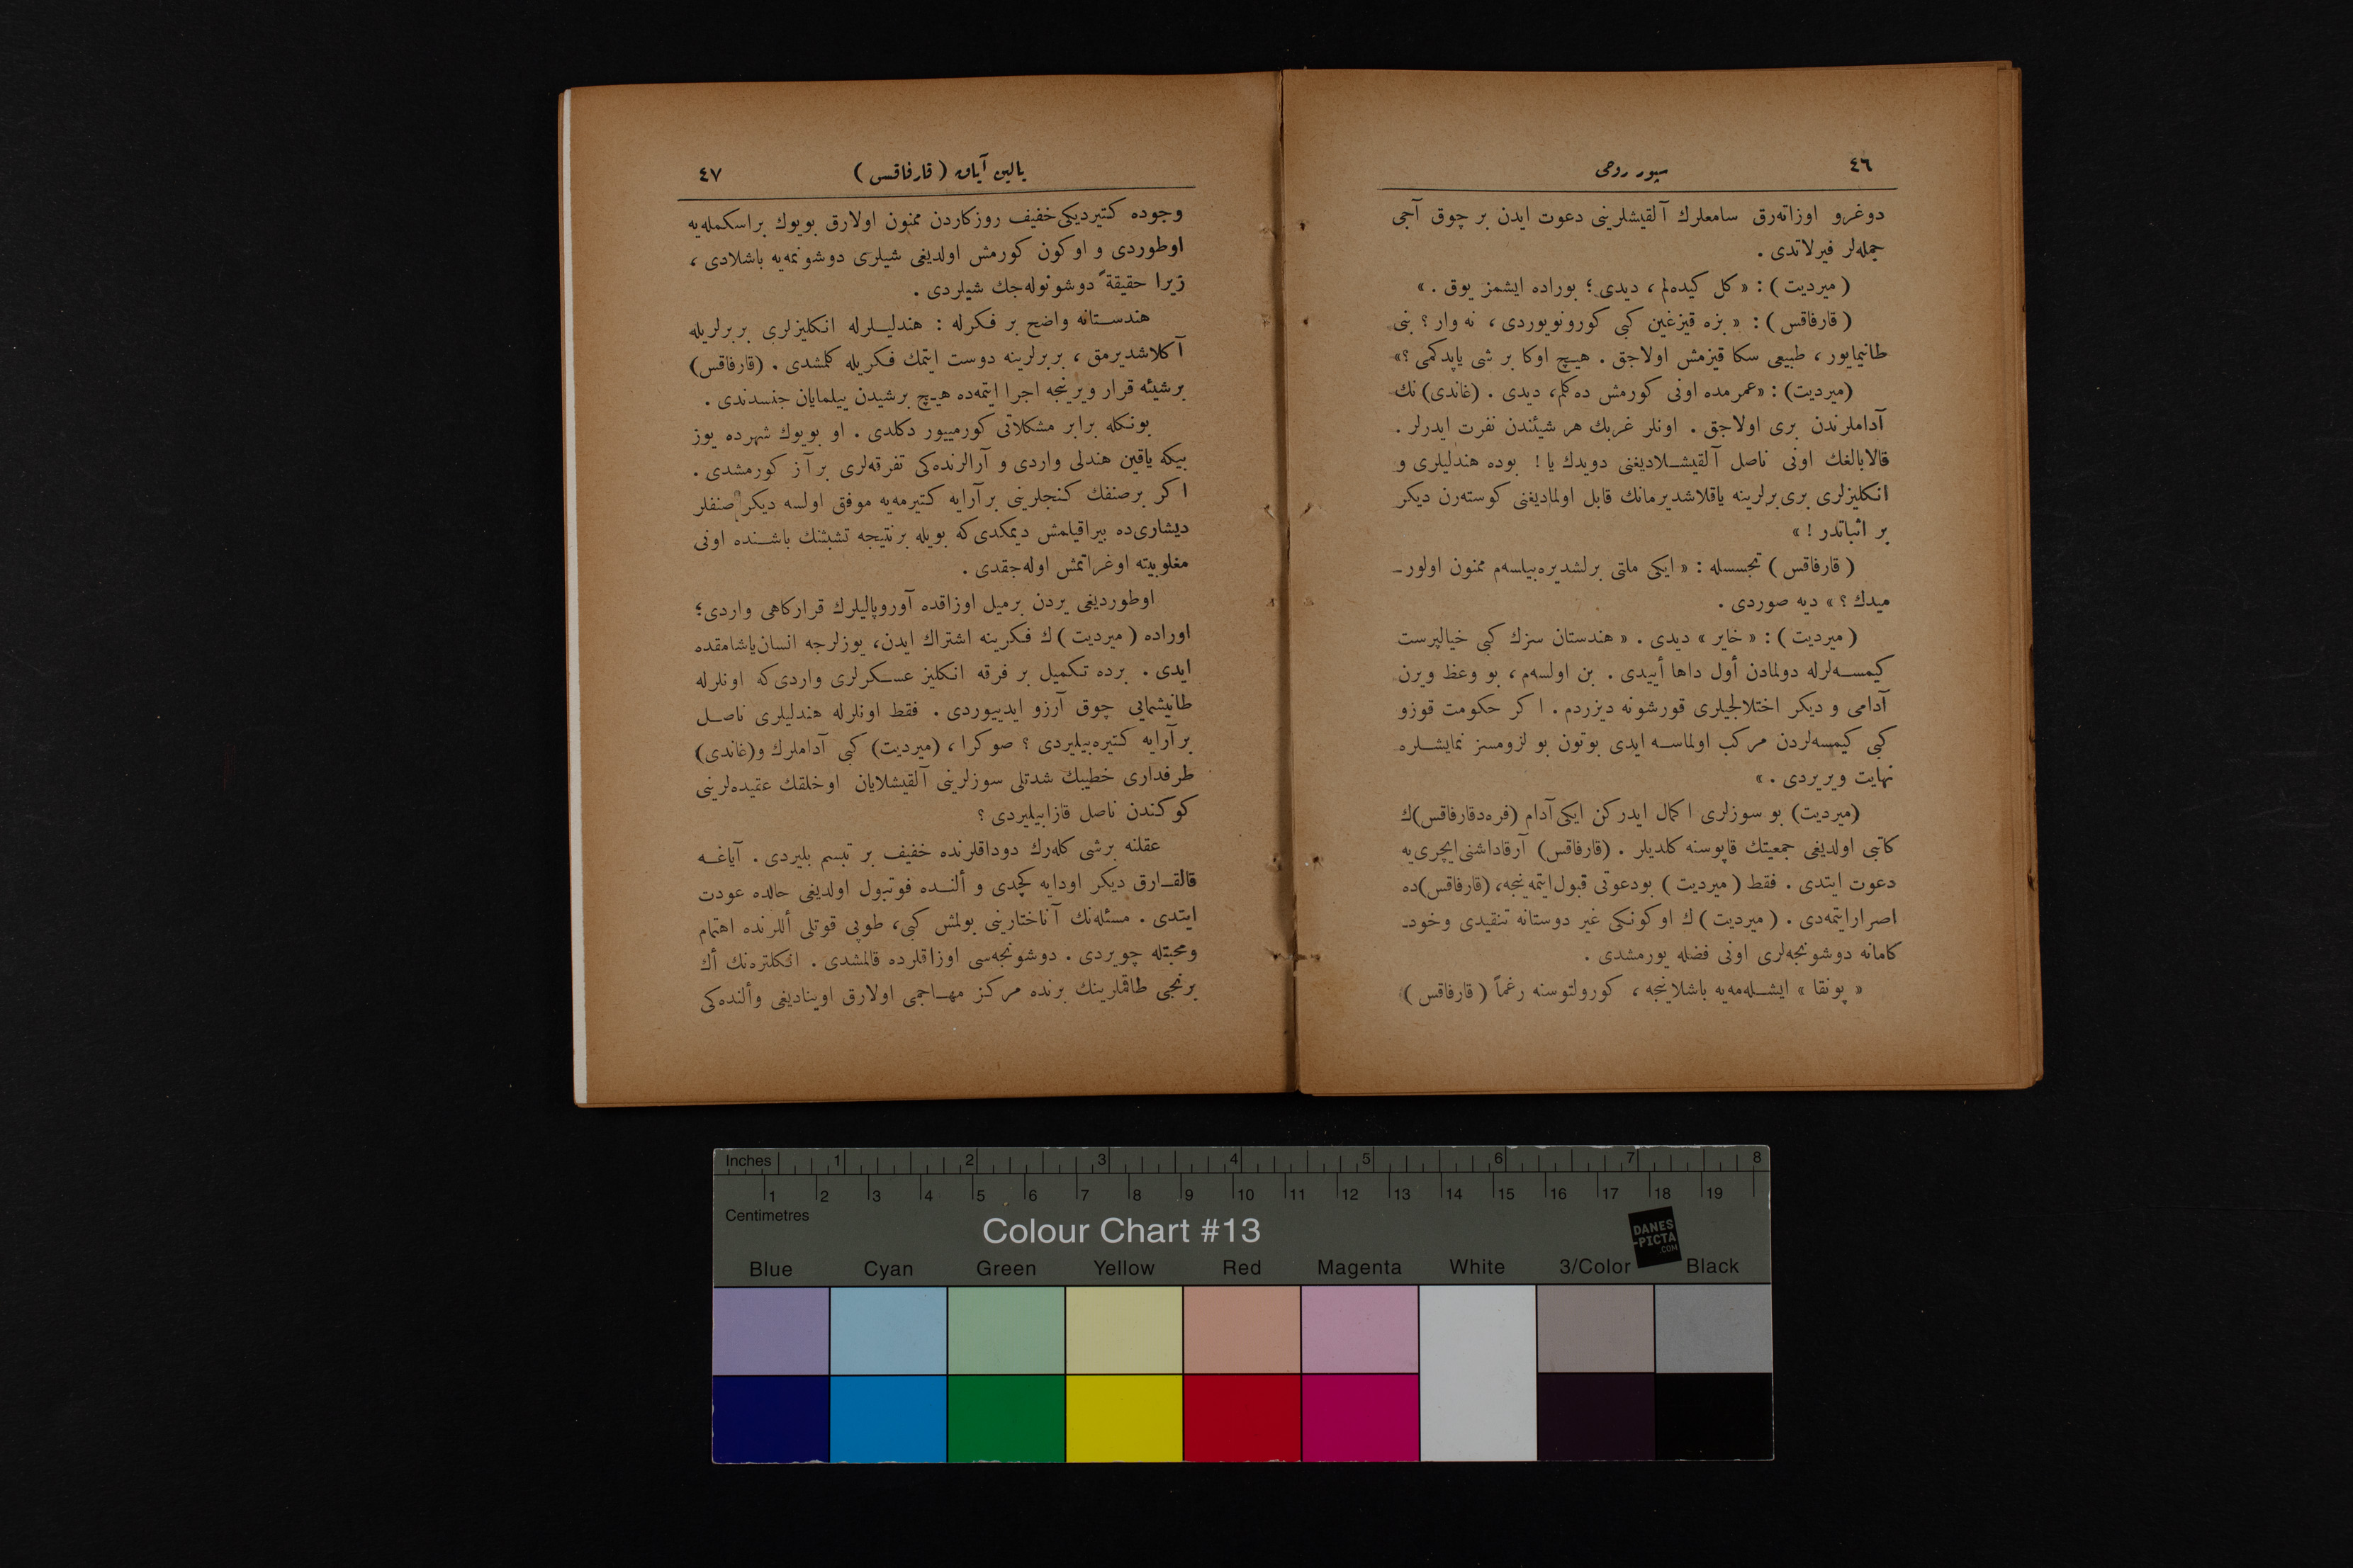 ٤٦
سپور روحی
دوغرو اوزاتەرق سامعلرك آلقیشلرینی دعوت ایدن بر چوق آجی
جمله‌لر فیرلاتدی .
( میردیت ) : « كل كیده‌لم ، دیدی ؛ بوراده ایشمز یوق . »
( قارفاقس ) : « بزه قیزغین كبی كورونویوردی ، نه وار ؟ بنی
طانیمایور ، طبیعی سكا قیزمش اولاجق . هیچ اوكا بر شی یاپدكمی ؟ »
(میردیت) : «عمرمده اونی كورمش ده‌كلم ، دیدی . (غاندی) نك
آداملرندن بری اولاجق . اونلر غربك هر شیئندن نفرت ایدرلر .
قالابالغك اونی ناصل آلقیشلادیغنی دویدك یا ! بوده هندلیلری و
انكلیزلری بری برلرینه یاقلاشدیرمانك قابل اولمادیغنی كوسته‌رن دیكر
بر اثباتدر ! »
( قارفاقس ) تجسسله : « ایكی ملتی برلشدیره‌بیلسه‌م ممنون اولور-
میدك ؟ » دیه صوردی .
( میردیت ) : « خایر » دیدی . « هندستان سزك كبی خیالپرست
كیمسه‌لرله دولمادن أول داها أییدی . بن اولسه‌م ، بو وعظ ویرن
آدامی و دیكر اختلالجیلری قورشونه دیزردم . اكر حكومت قوزو
كبی كیمسه‌لردن مركب اولماسه ایدی بوتون بو لزومسز نمایشلره
نهایت ویریردی . »
(میردیت) بو سوزلری اكمال ایدركن ایكی آدام (فره‌دقارفاقس)ك
كاتبی اولدیغی جمعیتك قاپوسنه كلدیلر . (قارفاقس) آرقاداشنی ایچری‌یه
دعوت ایتدی . فقط ( میردیت ) بودعوتی قبول ایتمه‌ینجه، (قارفاقس)ده
اصرار ایتمه‌دی . ( میردیت ) ك اوكونكی غیر دوستانه تنقیدی وخود-
كامانه دوشونجه‌لری اونی فضله یورمشدی .
« پونقا » ایشله‌مه‌یه باشلاینجه ، كورولتوسنه رغماً ( قارفاقس )
یالین آیاق ( قارفاقس )
٤٧
وجوده كتیردیكی خفیف روزكاردن ممنون اولارق بویوك براسكمله‌یه
اوطوردی و اوكون كورمش اولدیغی شیلری دوشونمه‌یه باشلادی ،
زیرا حقیقةً دوشونوله‌جك شیلردی .
هندستانه واضح بر فكرله : هندلیلرله انكلیزلری بربرلریله
آكلاشدیرمق ، بربرلرینه دوست ایتمك فكریله كلمشدی . (قارفاقس)
برشیئه قرار ویرینجه اجرا ایتمه‌ده هیچ برشیدن ییلمایان جنسدندی .
بونكله برابر مشكلاتی كورمییور دكلدی . او بویوك شهرده یوز
بیكه یاقین هندلی واردی و آرالرنده‌كی تفرقه‌لری بر آز كورمشدی .
اكر برصنفك كنجلرینی برآرایه كتیرمه‌یه موفق اولسه دیكر صنفلر
دیشاری‌ده بیراقیلمش دیمكدی كه بویله برنتیجه تشبثنك باشنده اونی
مغلوبیته اوغراتمش اوله‌جقدی .
اوطوردیغی یردن برمیل اوزاقده آوروپالیلرك قراركاهی واردی؛
اوراده ( میردیت ) ك فكرینه اشتراك ایدن، یوزلرجه انسان یاشامقده
ایدی . برده تكمیل بر فرقه انكلیز عسكرلری واردی كه اونلرله
طانیشمایی چوق آرزو ایدییوردی . فقط اونلرله هندلیلری ناصل
برآرایه كتیره‌بیلیردی ؟ صوكرا ، (میردیت) كبی آداملرك و(غاندی)
طرفداری خطیبك شدتلی سوزلرینی آلقیشلایان اوخلقك عقیده‌لرینی
كوكندن ناصل قازابیلیردی ؟
عقلنه برشی كله‌رك دوداقلرنده خفیف بر تبسم بلیردی . آیاغه
قالقارق دیكر اودایه كچدی و ألنده فوتبول اولدیغی حالده عودت
ایتدی . مسئله‌نك آناختارینی بولمش كبی، طوپی قوتلی أللرنده اهتمام
ومحبتله چویردی . دوشونجه‌سی اوزاقلرده قالمشدی . انكلتره‌نك أك
برنجی طاقملرینك برنده مركز مهاجمی اولارق اوینادیغی وألنده‌كی
Inches 1 2 3 4 5 6 7 8
1 2 3 4 5 6 7 8 9 10 11 12 13 14 15 16 17 18 19
Centimetres
Colour Chart #13
DANES
-PICTA
.COM
Blue Cyan Green Yellow Red Magenta White 3/Color Black